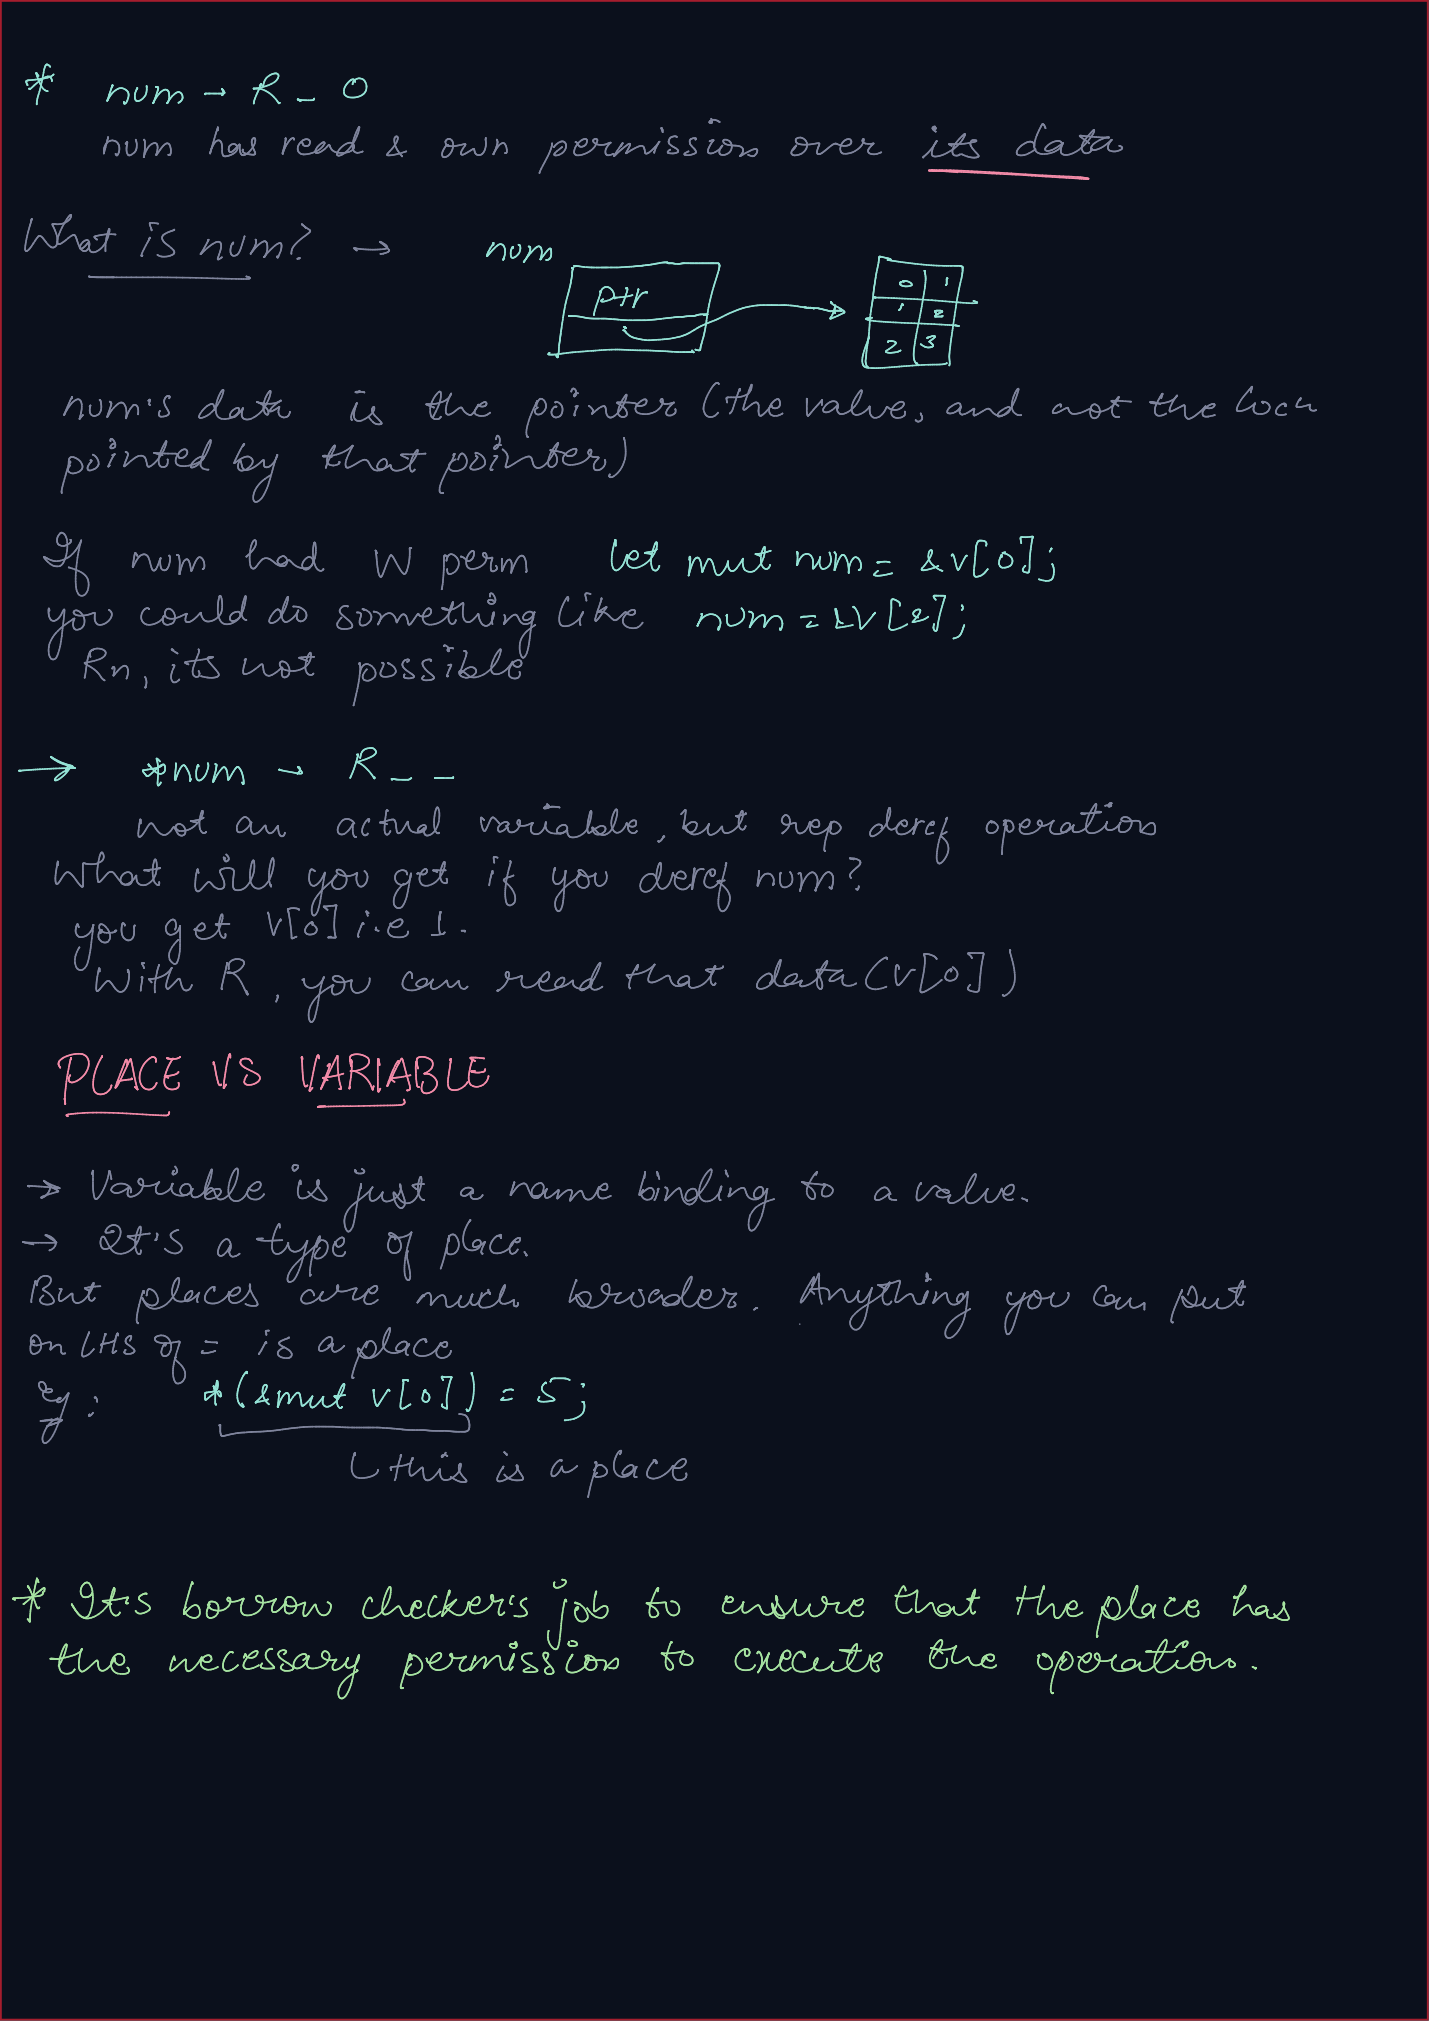 * num → R _ O
num has read & own permission over its data
What is num? →
num
ptr
0 1
1 2
2 3
num's data is the pointer (the value, and not the locn
pointed by that pointer)
If num had W perm let mut num = &v[0];
you could do something like num = &v[2];
Rn, its not possible
→ *num → R _ _
not an actual variable, but rep deref operation
What will you get if you deref num?
you get v[0] i.e 1.
With R, you can read that data (v[0])
PLACE VS VARIABLE
→ Variable is just a name binding to a value.
→ It's a type of place.
But places are much broader. Anything you can put
on LHS of = is a place
Eg: *(&mut v[0]) = 5;
this is a place
* It's borrow checker's job to ensure that the place has
the necessary permission to execute the operation.